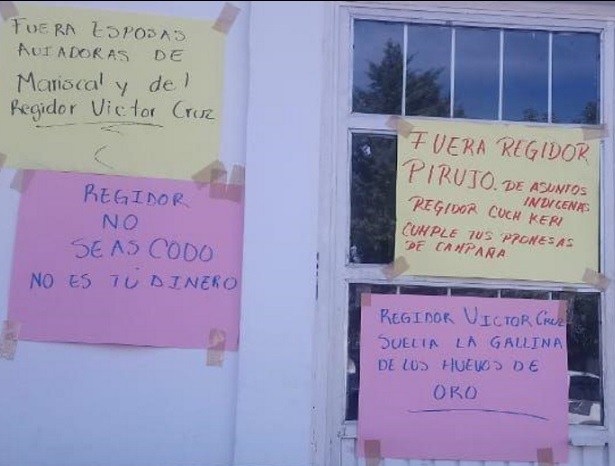 FUERA ESPOSAS
AVIADORAS DE
Mariscal y del
Regidor Victor Cruz
REGIDOR
NO
SEAS CODO
NO ES TU DINERO
FUERA REGIDOR
PIRUJO. DE ASUNTOS
INDIGENAS
REGIDOR CUCH KERI
CUMPLE TUS PROMESAS
DE CAMPAÑA
REGIDOR VICTOR Cruz
SUELTA LA GALLINA
DE LOS HUEVOS DE
ORO